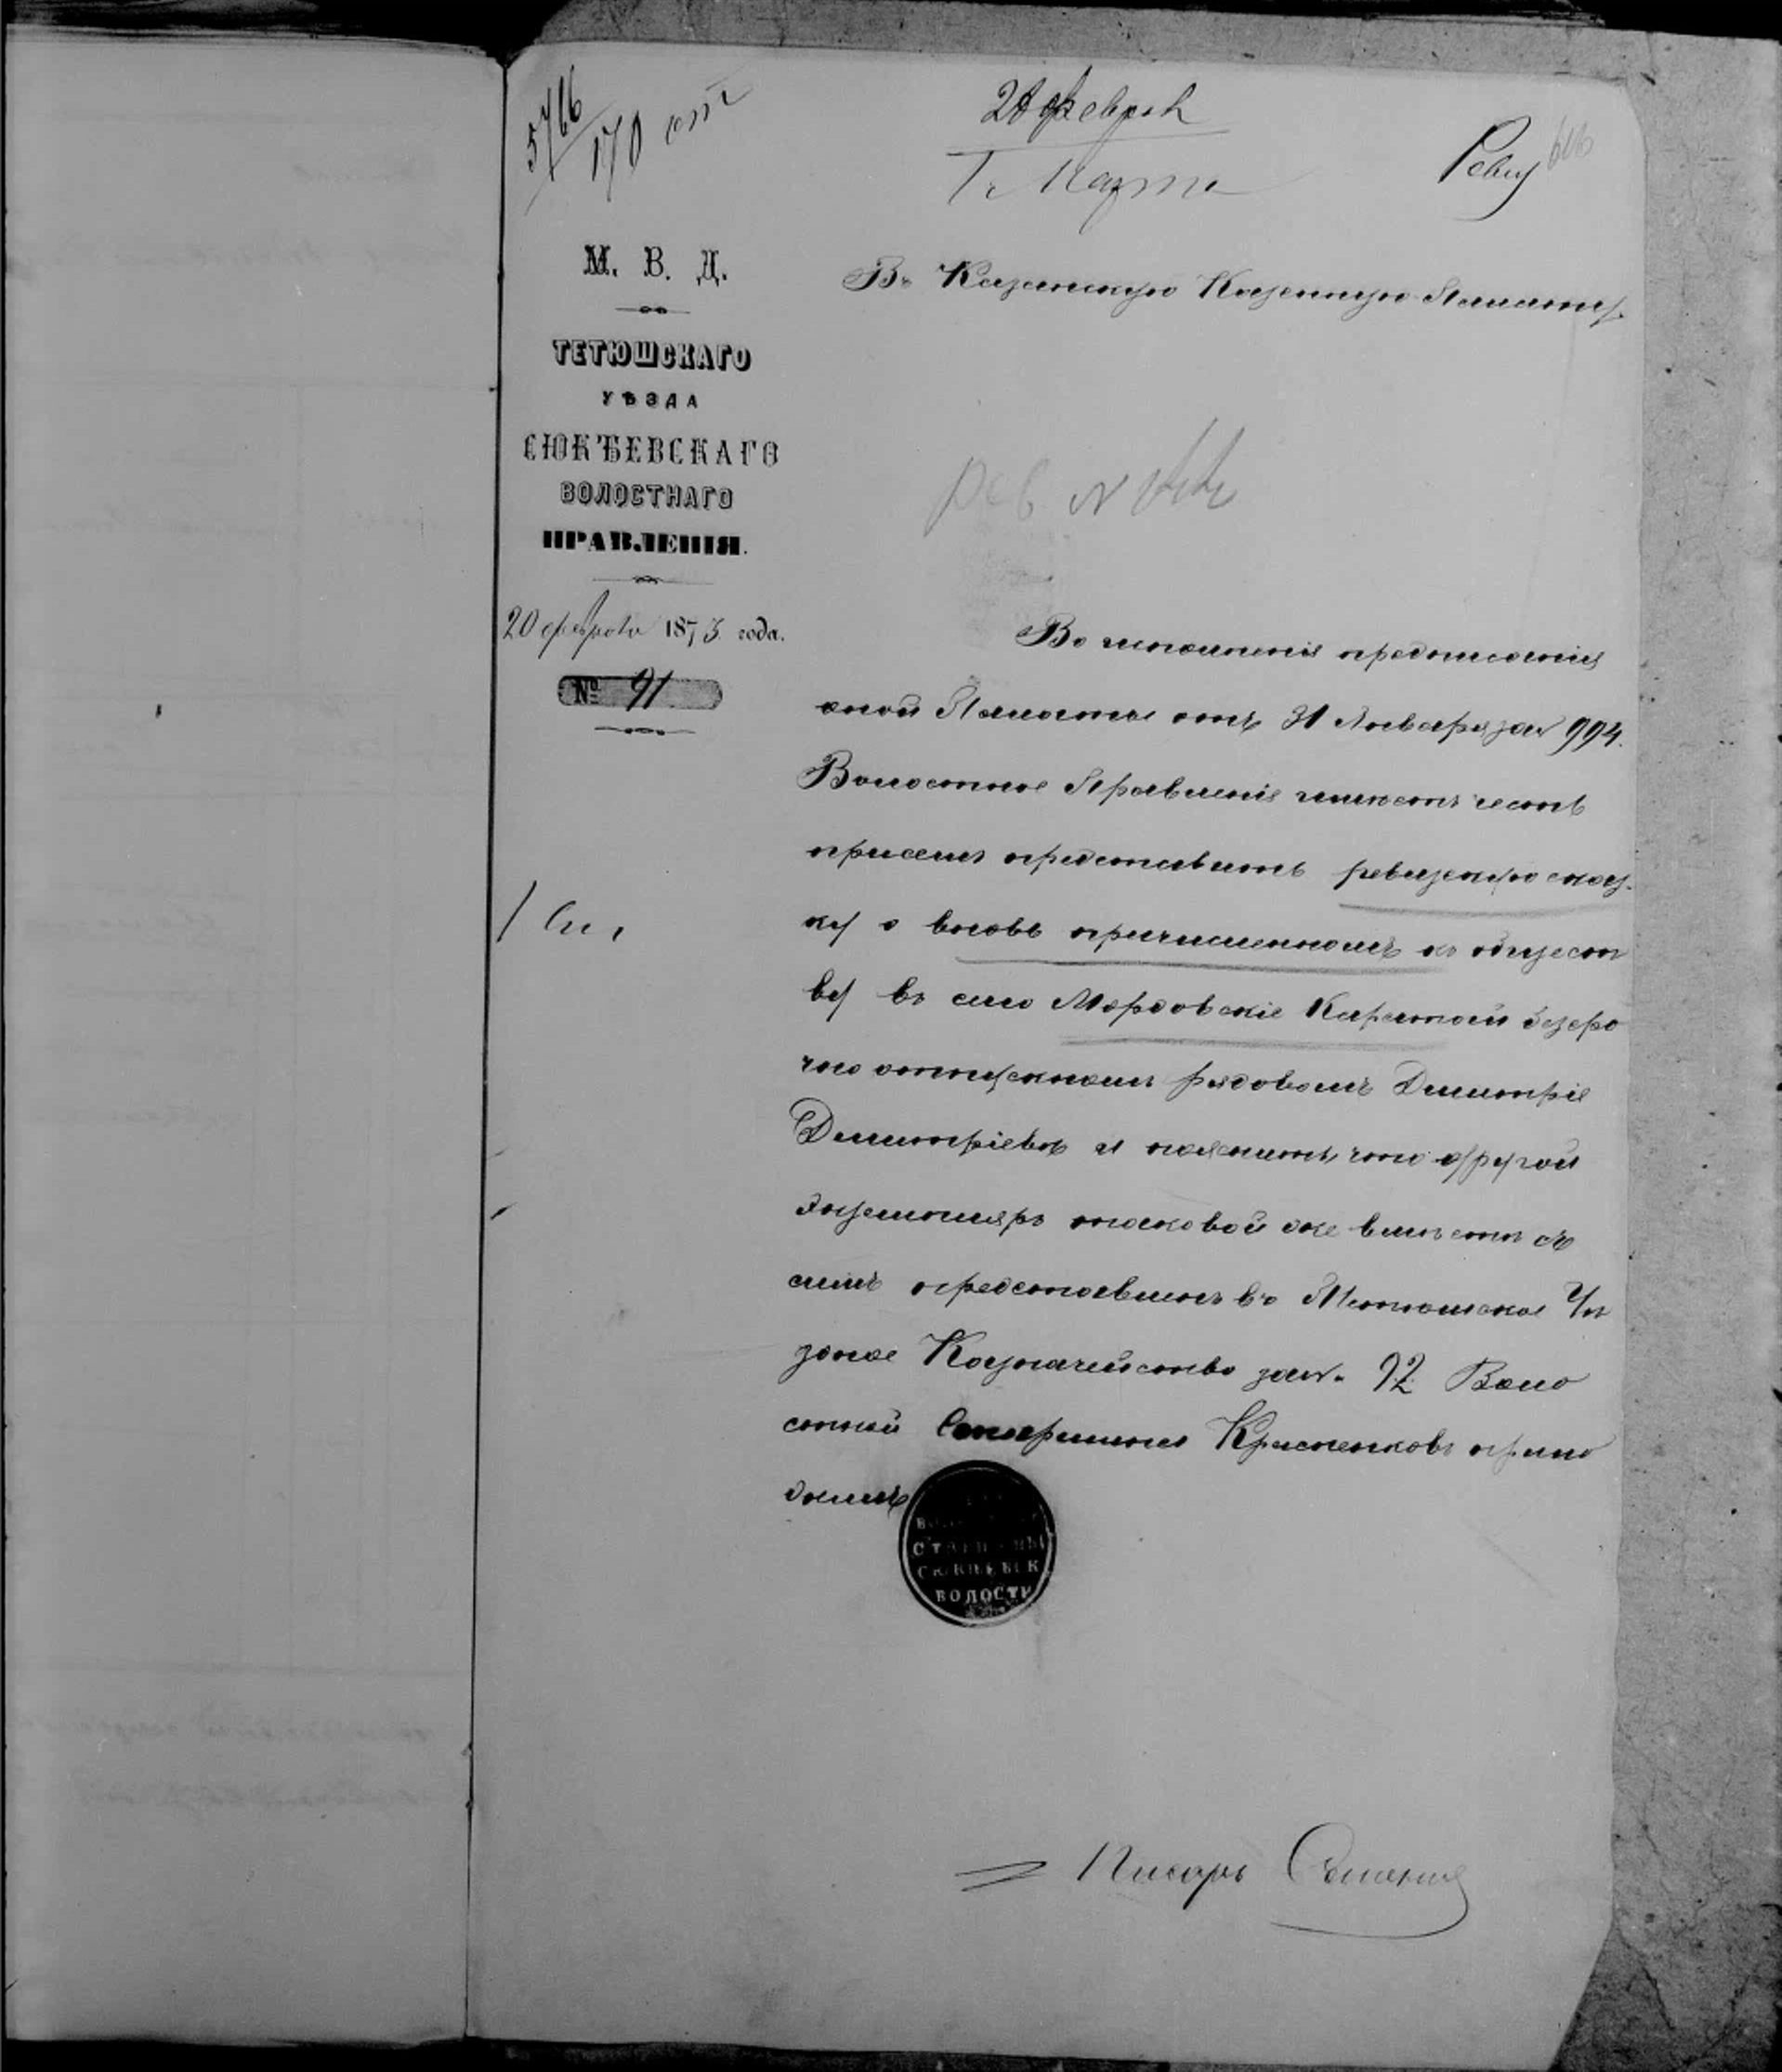 5766
170 ст
28 феврал
1 Марта
Реви
М. В. Д.
ТЕТЮШСКАГО
УѢЗДА
СЮКѢЕВСКАГО
ВОЛОСТНАГО
ПРАВЛЕНІЯ.
20 февраля 1873 года.
№ 91
Въ Казанскую Казенную Палату.
рев №
Во исполненія предписанія
оной Палаты отъ 31 Января за № 994.
Волостное Правленія имѣетъ честь
при семъ представить ревизскую сказ-
ку о вновь причисленномъ къ общест
ву въ село Мордовскіе Каратаи безсро
чно отпускномъ рядовомъ Димитріе
Димитріевѣ и пояснить, что другой
экземпляръ таковой же вмѣстѣ съ
симъ представленъ въ Тетюшское Уѣ
здное Казначейство за №. 92 Воло
стной Старшина Красненковъ прило
жилъ
СТАРШИНЫ
ВОЛОСТИ
Писарь